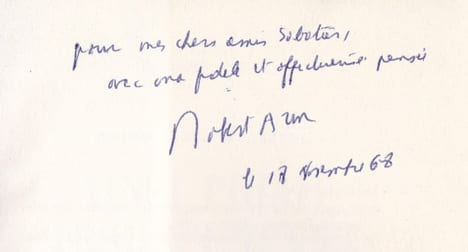 pour mes chers amis Sabatier,
avec ma fidèle et affectueuse pensée
Robert A
le 17 novembre 68